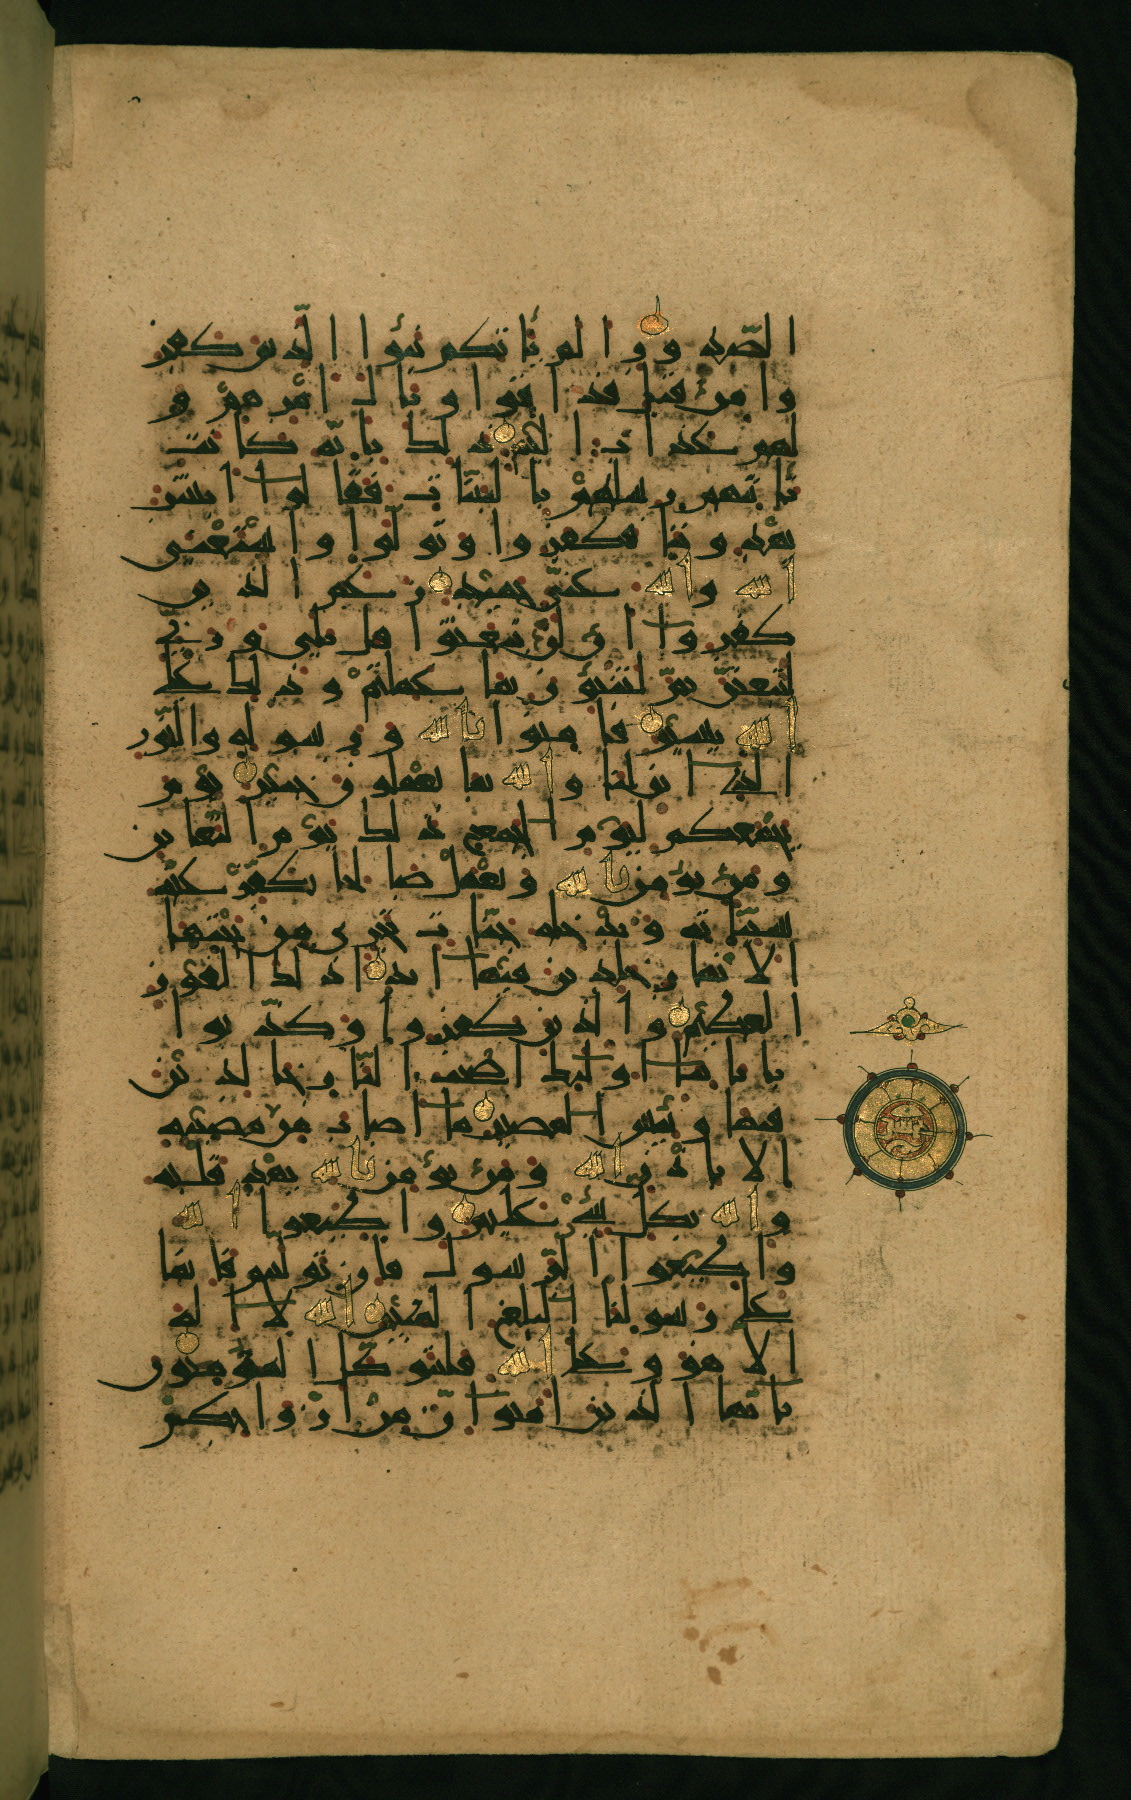 الصدور الم ياتكم نبوا الذين كفر
وا من قبل فذاقوا وبال امرهم و
لهم عذاب اليم ذلك بانه كانت
تاتيهم رسلهم بالبينات فقالوا ابشر
يهدوننا فكفروا وتولوا واستغنى
الله والله غني حميد زعم الذين
كفروا ان لن يبعثوا قل بلى وربي
لتبعثن ثم لتنبؤن بما عملتم وذلك على
الله يسير فامنوا بالله ورسوله والنور
الذي انزلنا والله بما تعملون خبير يوم
يجمعكم ليوم الجمع ذلك يوم التغابن
ومن يؤمن بالله ويعمل صالحا يكفر عنه
سياته ويدخله جنات تجري من تحتها
الانهار خلدين فيها ابدا ذلك الفوز
العظيم والذين كفروا وكذبوا
باياتنا اولئك اصحب النار خالدين
فيها وبئس المصير ما اصاب من مصيبة
الا باذن الله ومن يؤمن بالله يهد قلبه
والله بكل شيء عليم واطيعوا الله
واطيعوا الرسول فان توليتم فانما
على رسولنا البلغ المبين الله لا اله
الا هو وعلى الله فليتوكل المؤمنون
يايها الذين امنوا ان من ازواجكم